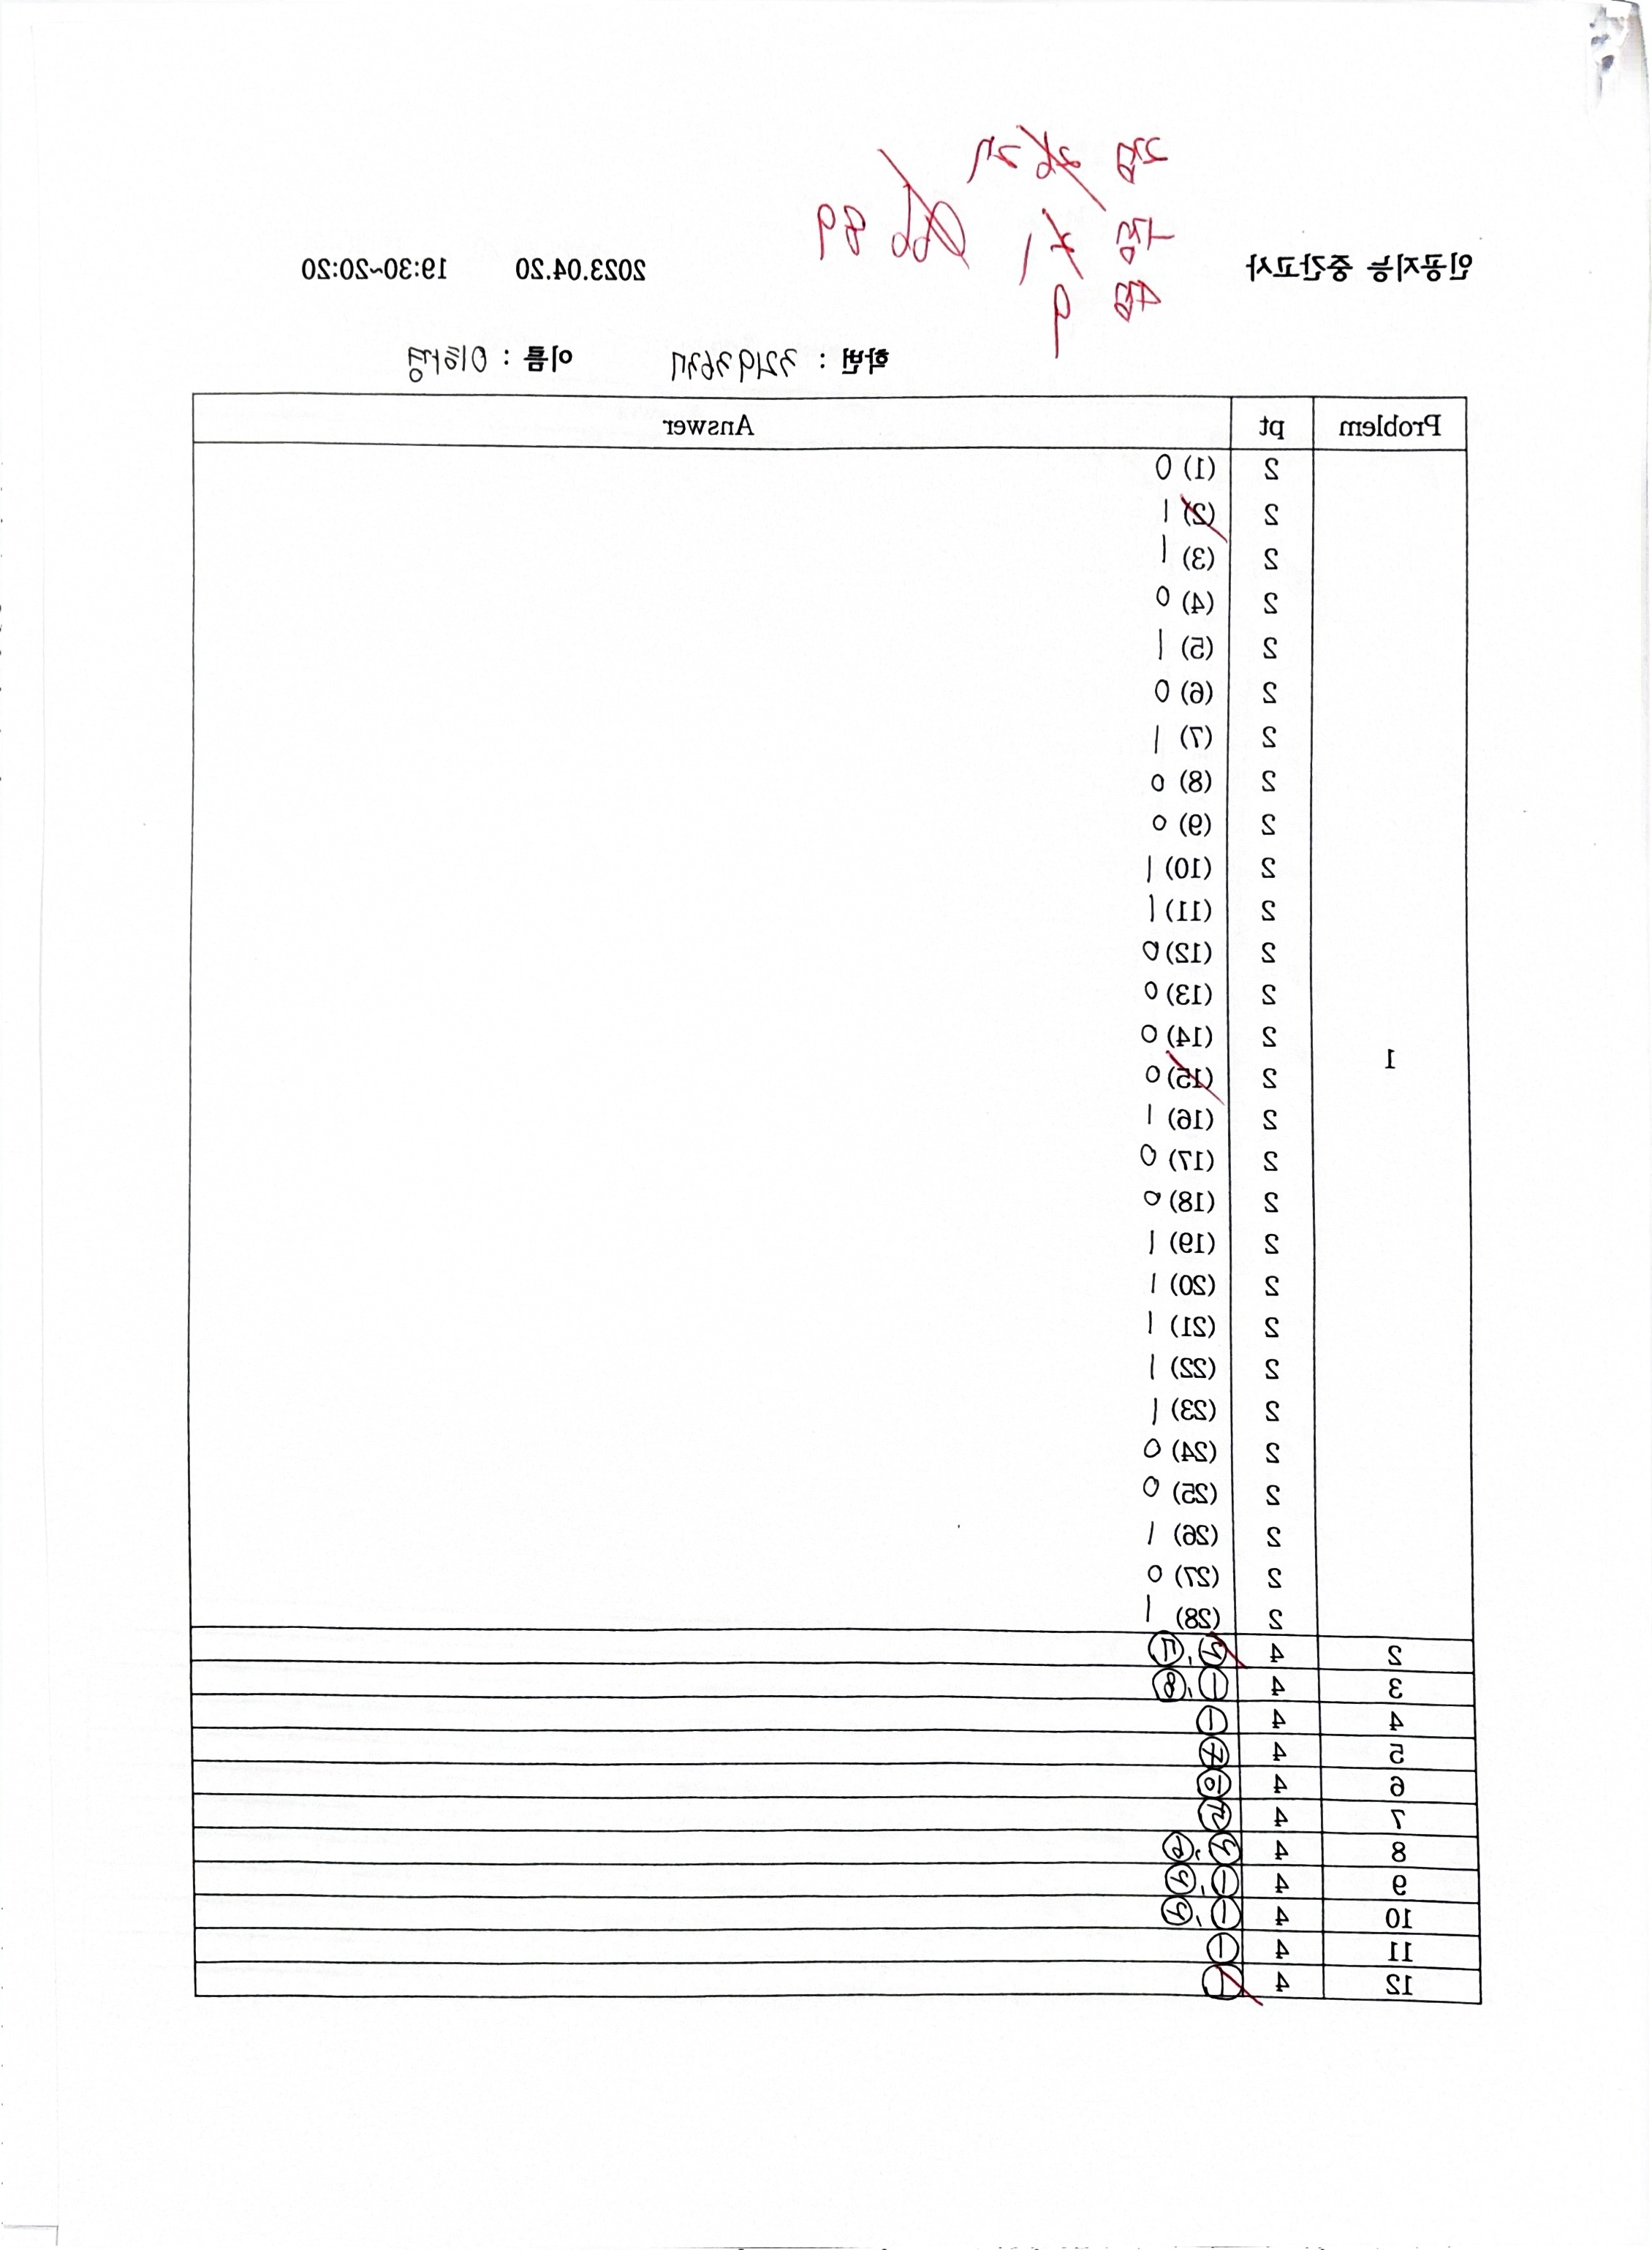 2점
1점
4점 9
89
인공지능 중간고사 2023.04.20 19:30~20:20
학번 : 32193637 이름 : 이하경
Problem pt Answer
1
2 (1) 0
2 (2) 1
2 (3) 1
2 (4) 0
2 (5) 1
2 (6) 0
2 (7) 1
2 (8) 0
2 (9) 0
2 (10) 1
2 (11) 1
2 (12) 0
2 (13) 0
2 (14) 0
2 (15) 0
2 (16) 1
2 (17) 0
2 (18) 0
2 (19) 1
2 (20) 1
2 (21) 1
2 (22) 1
2 (23) 1
2 (24) 0
2 (25) 0
2 (26) 1
2 (27) 0
2 (28) 1
2 4
3 4 ①, ⑧
4 4 ①
5 4 ⑦
6 4 ⑩
7 4 ⑫
8 4
9 4 ①,
10 4 ①,
11 4 ①
12 4 ①